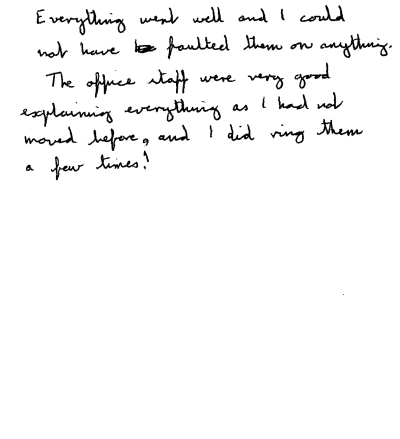 Everything went well and I could
not have faulted them on anything.
The office staff were very good
explaining everything as I had not
moved before, and I did ring them
a few times!